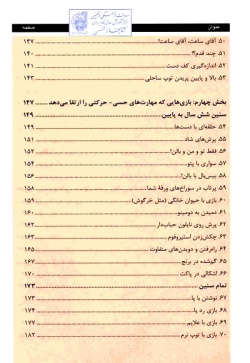 عنوان
صفحه
۵۰. آقای ساعت، آقای ساعت! ۱۳۷
۵۱. چند قدم؟ ۱۴۰
۵۲. اندازه‌گیری کف دست ۱۴۱
۵۳. بالا و پایین پریدن توپ ساحلی ۱۴۳
بخش چهارم: بازی‌هایی که مهارت‌های حسی - حرکتی را ارتقا می‌دهد ۱۴۷
سنین شش سال به پایین ۱۴۹
۵۴. حلقه‌ای با دست‌ها ۱۴۹
۵۵. پرش‌های شاد ۱۵۱
۵۶. فقط تو و من و بالن! ۱۵۲
۵۷. سواری با پتو ۱۵۴
۵۸. بیس‌بال با بالن! ۱۵۶
۵۹. پرتاب در سوراخ‌های ورقهٔ شما! ۱۵۸
۶۰. بازی با حیوان خانگی (مثل خرگوش) ۱۵۹
۶۱. دمیدن به دومینو ۱۶۰
۶۲. پرش روی نایلون حباب‌دار ۱۶۲
۶۳. چکش‌زدن استیروفوم ۱۶۳
۶۴. راه‌رفتن و دویدن‌های متفاوت ۱۶۵
۶۵. گم‌شده در برنج ۱۶۷
۶۶. اشکالی در پاکت ۱۷۰
تمام سنین ۱۷۳
۶۷. نوشتن با پا ۱۷۳
۶۸. بازی رد پا ۱۷۴
۶۹. بازی با علایم ۱۷۷
۷۰. بازی با توپ نرم ۱۸۲